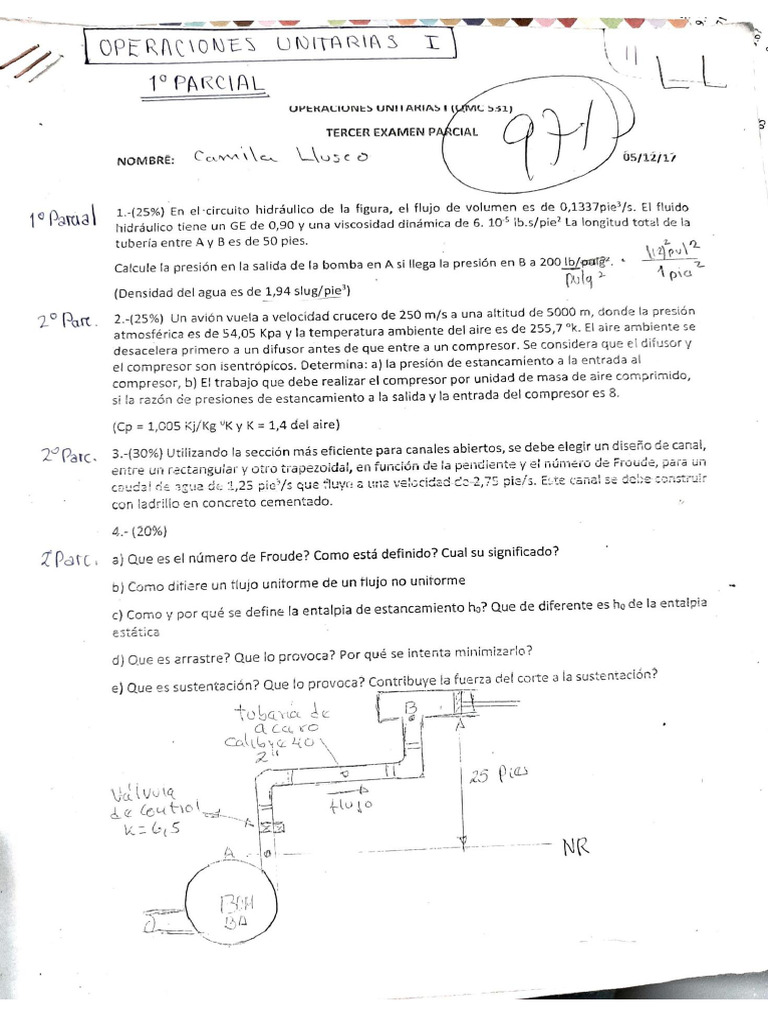 OPERACIONES UNITARIAS I
1º PARCIAL
LL
OPERACIONES UNITARIAS I (QMC 531)
TERCER EXAMEN PARCIAL
NOMBRE: Camila Llusco
05/12/17
1º Parcial
1.-(25%) En el circuito hidráulico de la figura, el flujo de volumen es de 0,1337pie³/s. El fluido
hidráulico tiene un GE de 0,90 y una viscosidad dinámica de 6. 10⁻⁵ lb.s/pie² La longitud total de la
tubería entre A y B es de 50 pies.
Calcule la presión en la salida de la bomba en A si llega la presión en B a 200 lb/pulg².
pulg²
1 pie²
(Densidad del agua es de 1,94 slug/pie³)
2º Parc.
2.-(25%) Un avión vuela a velocidad crucero de 250 m/s a una altitud de 5000 m, donde la presión
atmosférica es de 54,05 Kpa y la temperatura ambiente del aire es de 255,7 ºk. El aire ambiente se
desacelera primero a un difusor antes de que entre a un compresor. Se considera que el difusor y
el compresor son isentrópicos. Determina: a) la presión de estancamiento a la entrada al
compresor, b) El trabajo que debe realizar el compresor por unidad de masa de aire comprimido,
si la razón de presiones de estancamiento a la salida y la entrada del compresor es 8.
(Cp = 1,005 Kj/Kg ºK y K = 1,4 del aire)
2º Parc.
3.-(30%) Utilizando la sección más eficiente para canales abiertos, se debe elegir un diseño de canal,
entre un rectangular y otro trapezoidal, en función de la pendiente y el número de Froude, para un
caudal de agua de 1,25 pie³/s que fluye a una velocidad de 2,75 pie/s. Este canal se debe construir
con ladrillo en concreto cementado.
4.- (20%)
2º Parc.
a) Que es el número de Froude? Como está definido? Cual su significado?
b) Como difiere un flujo uniforme de un flujo no uniforme
c) Como y por qué se define la entalpia de estancamiento h₀? Que de diferente es h₀ de la entalpia
estática
d) Que es arrastre? Que lo provoca? Por qué se intenta minimizarlo?
e) Que es sustentación? Que lo provoca? Contribuye la fuerza del corte a la sustentación?
tubería de
acero
calibre 40
2"
B
25 Pies
flujo
Válvula
de control
K=6,5
A
NR
BOM
BA